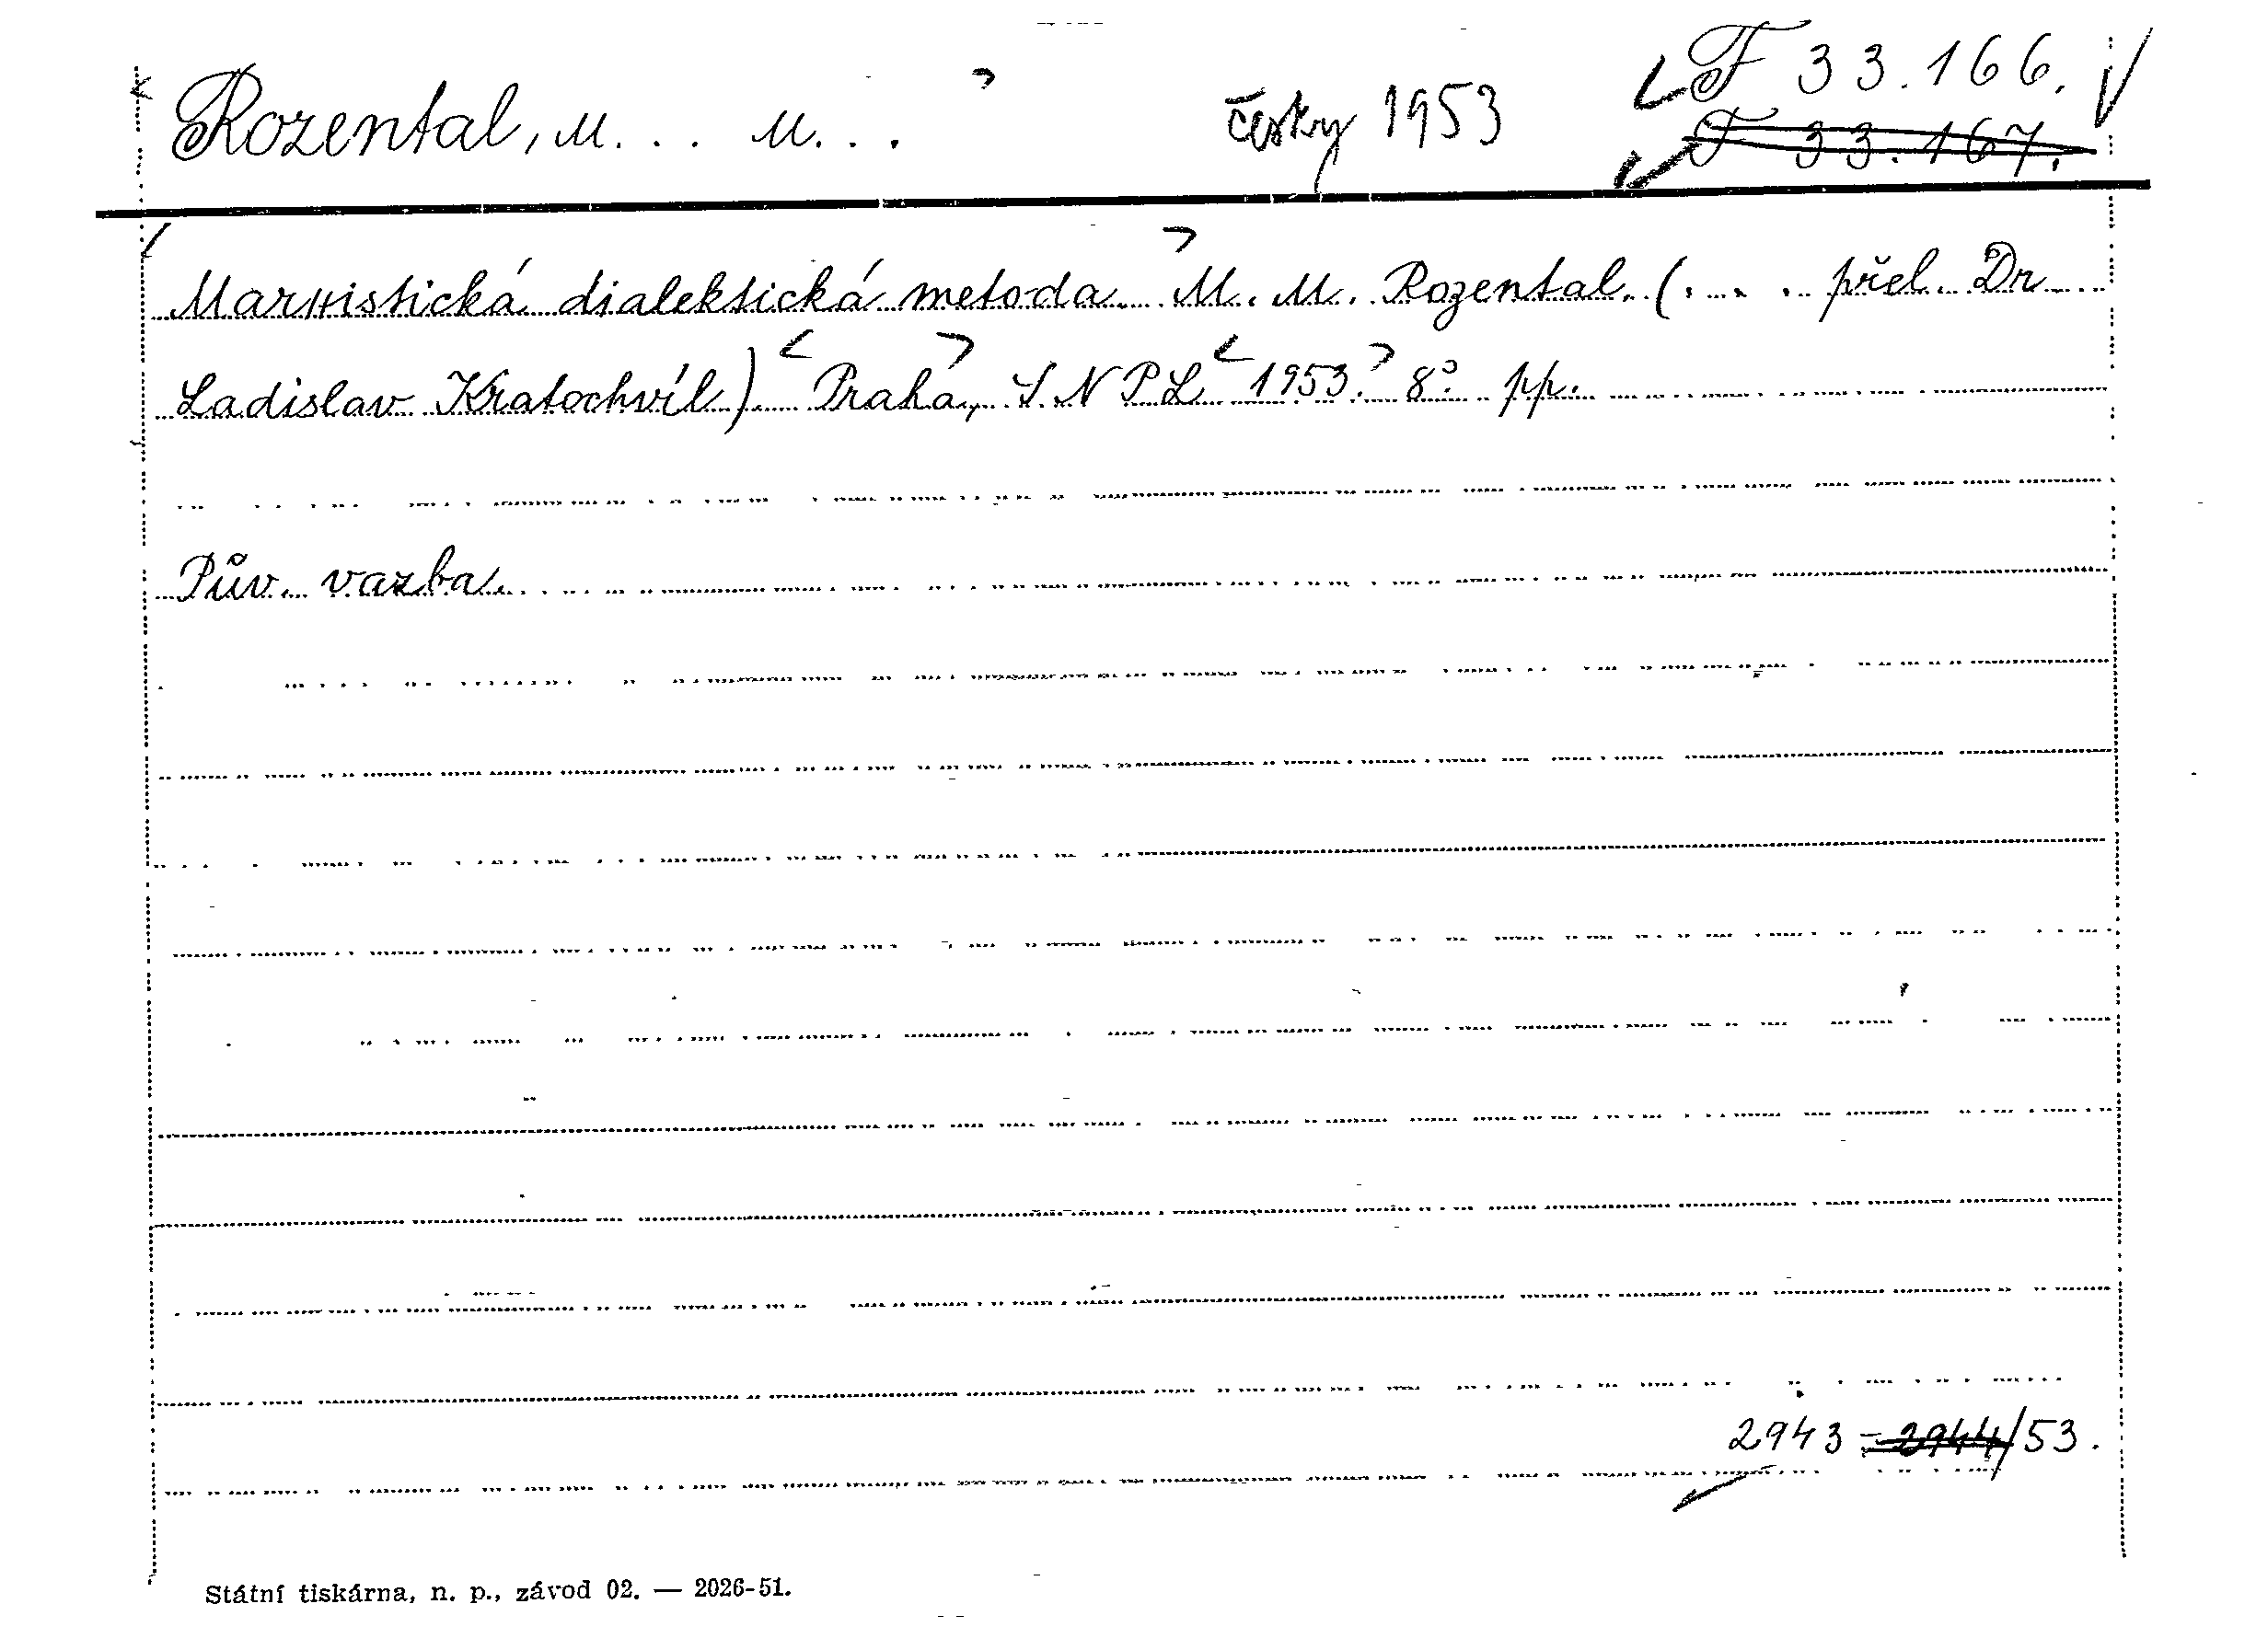 Rozental, M... M... česky 1953 F 33.166.
F 33.167.
Marxistická dialektická metoda. M. M. Rozental. (... přel. Dr.
Ladislav Kratochvíl) Praha, SNPL 1953. 8° pp.
Pův. vazba.
2943-2944/53.
Státní tiskárna, n. p., závod 02. — 2026-51.